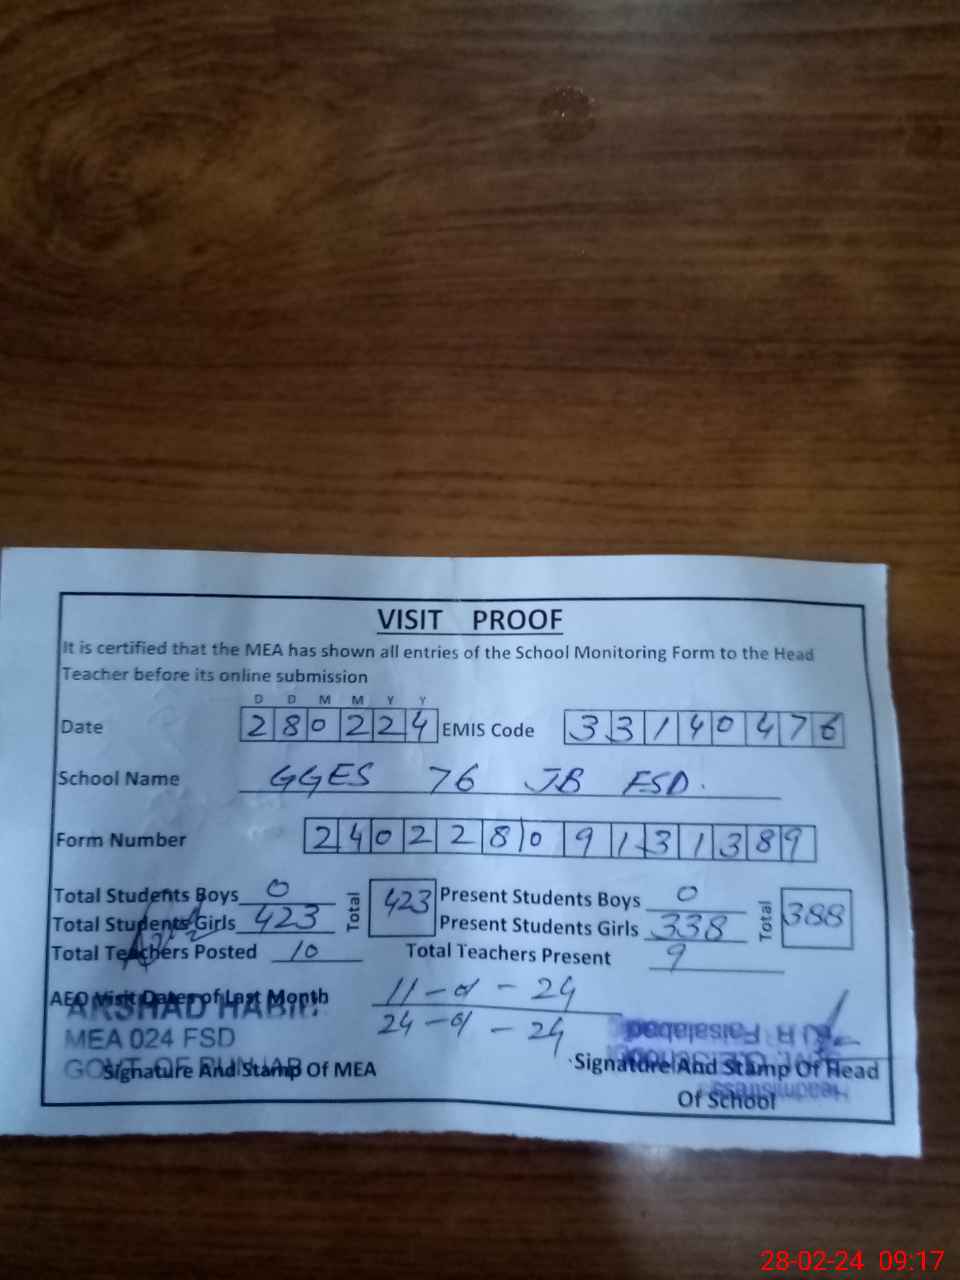 VISIT PROOF
It is certified that the MEA has shown all entries of the School Monitoring Form to the Head
Teacher before its online submission
D D M M Y Y
Date 280224 EMIS Code 33140476
School Name GGES 76 JB FSD.
Form Number 24022809131389
Total Students Boys 0 Total 423 Present Students Boys 0 Total 388
Total Students Girls 423 Present Students Girls 338
Total Teachers Posted 10 Total Teachers Present 9
AEO Visit Dates of Last Month 11-01-24
24-01-24
ARSHAD HABIB
MEA 024 FSD
GOVT. OF PUNJAB
Signature And Stamp Of MEA
Signature And Stamp Of Head
Of School
Headmistress
Faisalabad
28-02-24 09:17